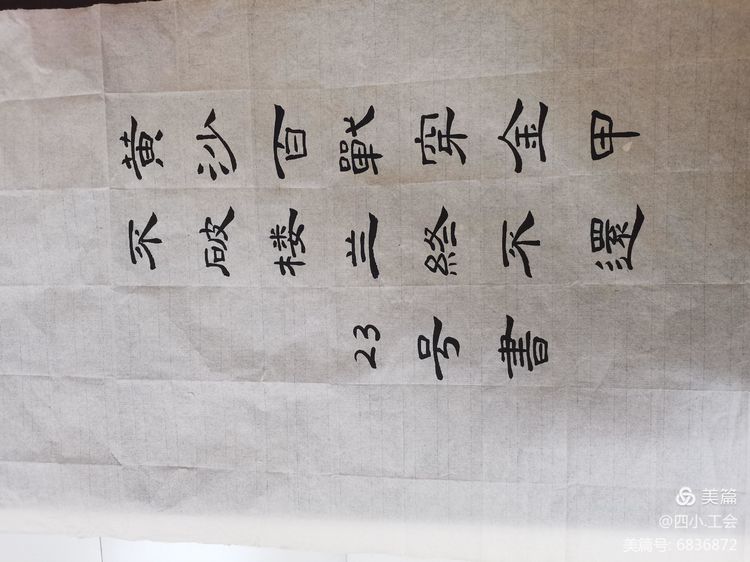 黄沙百戰穿金甲
不破楼兰終不還
23号書
美篇
@四小.工会
美篇号: 6836872